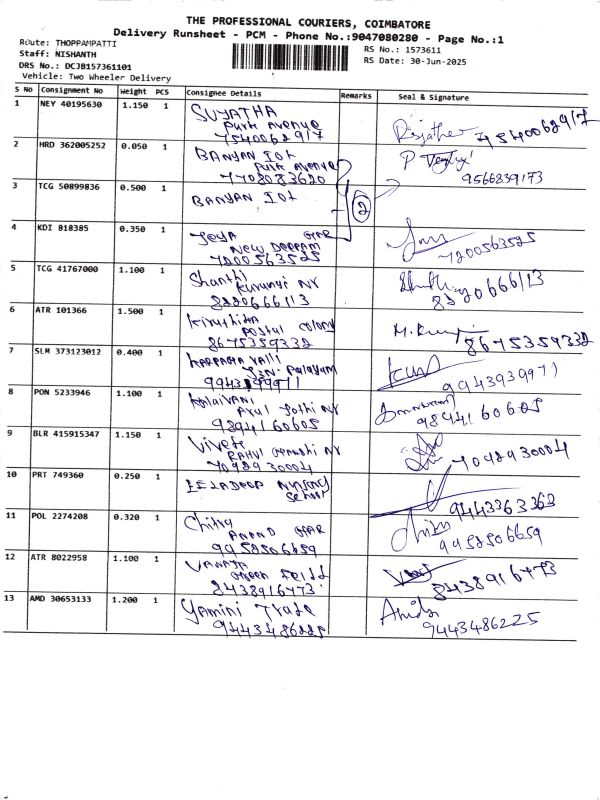 THE PROFESSIONAL COURIERS, COIMBATORE
Delivery Runsheet - PCM - Phone No.:9047080280 - Page No.:1
Route: THOPPAMPATTI
Staff: NISHANTH
RS No.: 1573611
DRS No.: DCJB157361101
RS Date: 30-Jun-2025
Vehicle: Two Wheeler Delivery
S No Consignment No Weight PCS Consignee Details Remarks Seal & Signature
1 NEY 40195630 1.150 1 SUJATHA
Park Avenue
7540062917 7540062917
2 HRD 362005252 0.050 1 BANYAN IOt
Park Avenue
7708083620 9566839173
3 TCG 50899836 0.500 1 BANYAN IOt 2
4 KDI 818385 0.350 1 JEYA
NEW DEEPAM
7200563525 7200563525
5 TCG 41767000 1.100 1 Shanthi
Kurunji Nr
8220666113 8220666113
6 ATR 101366 1.500 1 Kiruthika
Postal Colony
8675359332 8675359332
7 SLM 373123012 0.400 1 KARPAGAVALLI
S.N. Palayam
9943939971 9943939971
8 PON 5233946 1.100 1 Kalaivani
Arul Jothi Nr
9894160605 9894160605
9 BLR 415915347 1.150 1 Vivek
7092930004 7092930004
10 PRT 749360 0.250 1 Nursery
School 9443363363
11 POL 2274208 0.320 1 Chitra
ANAND
9952506659 9952506659
12 ATR 8022958 1.100 1 VANAJA
Green Field
8438916773 8438916773
13 AMD 30653133 1.200 1 Yamini Trade
9443486225 9443486225